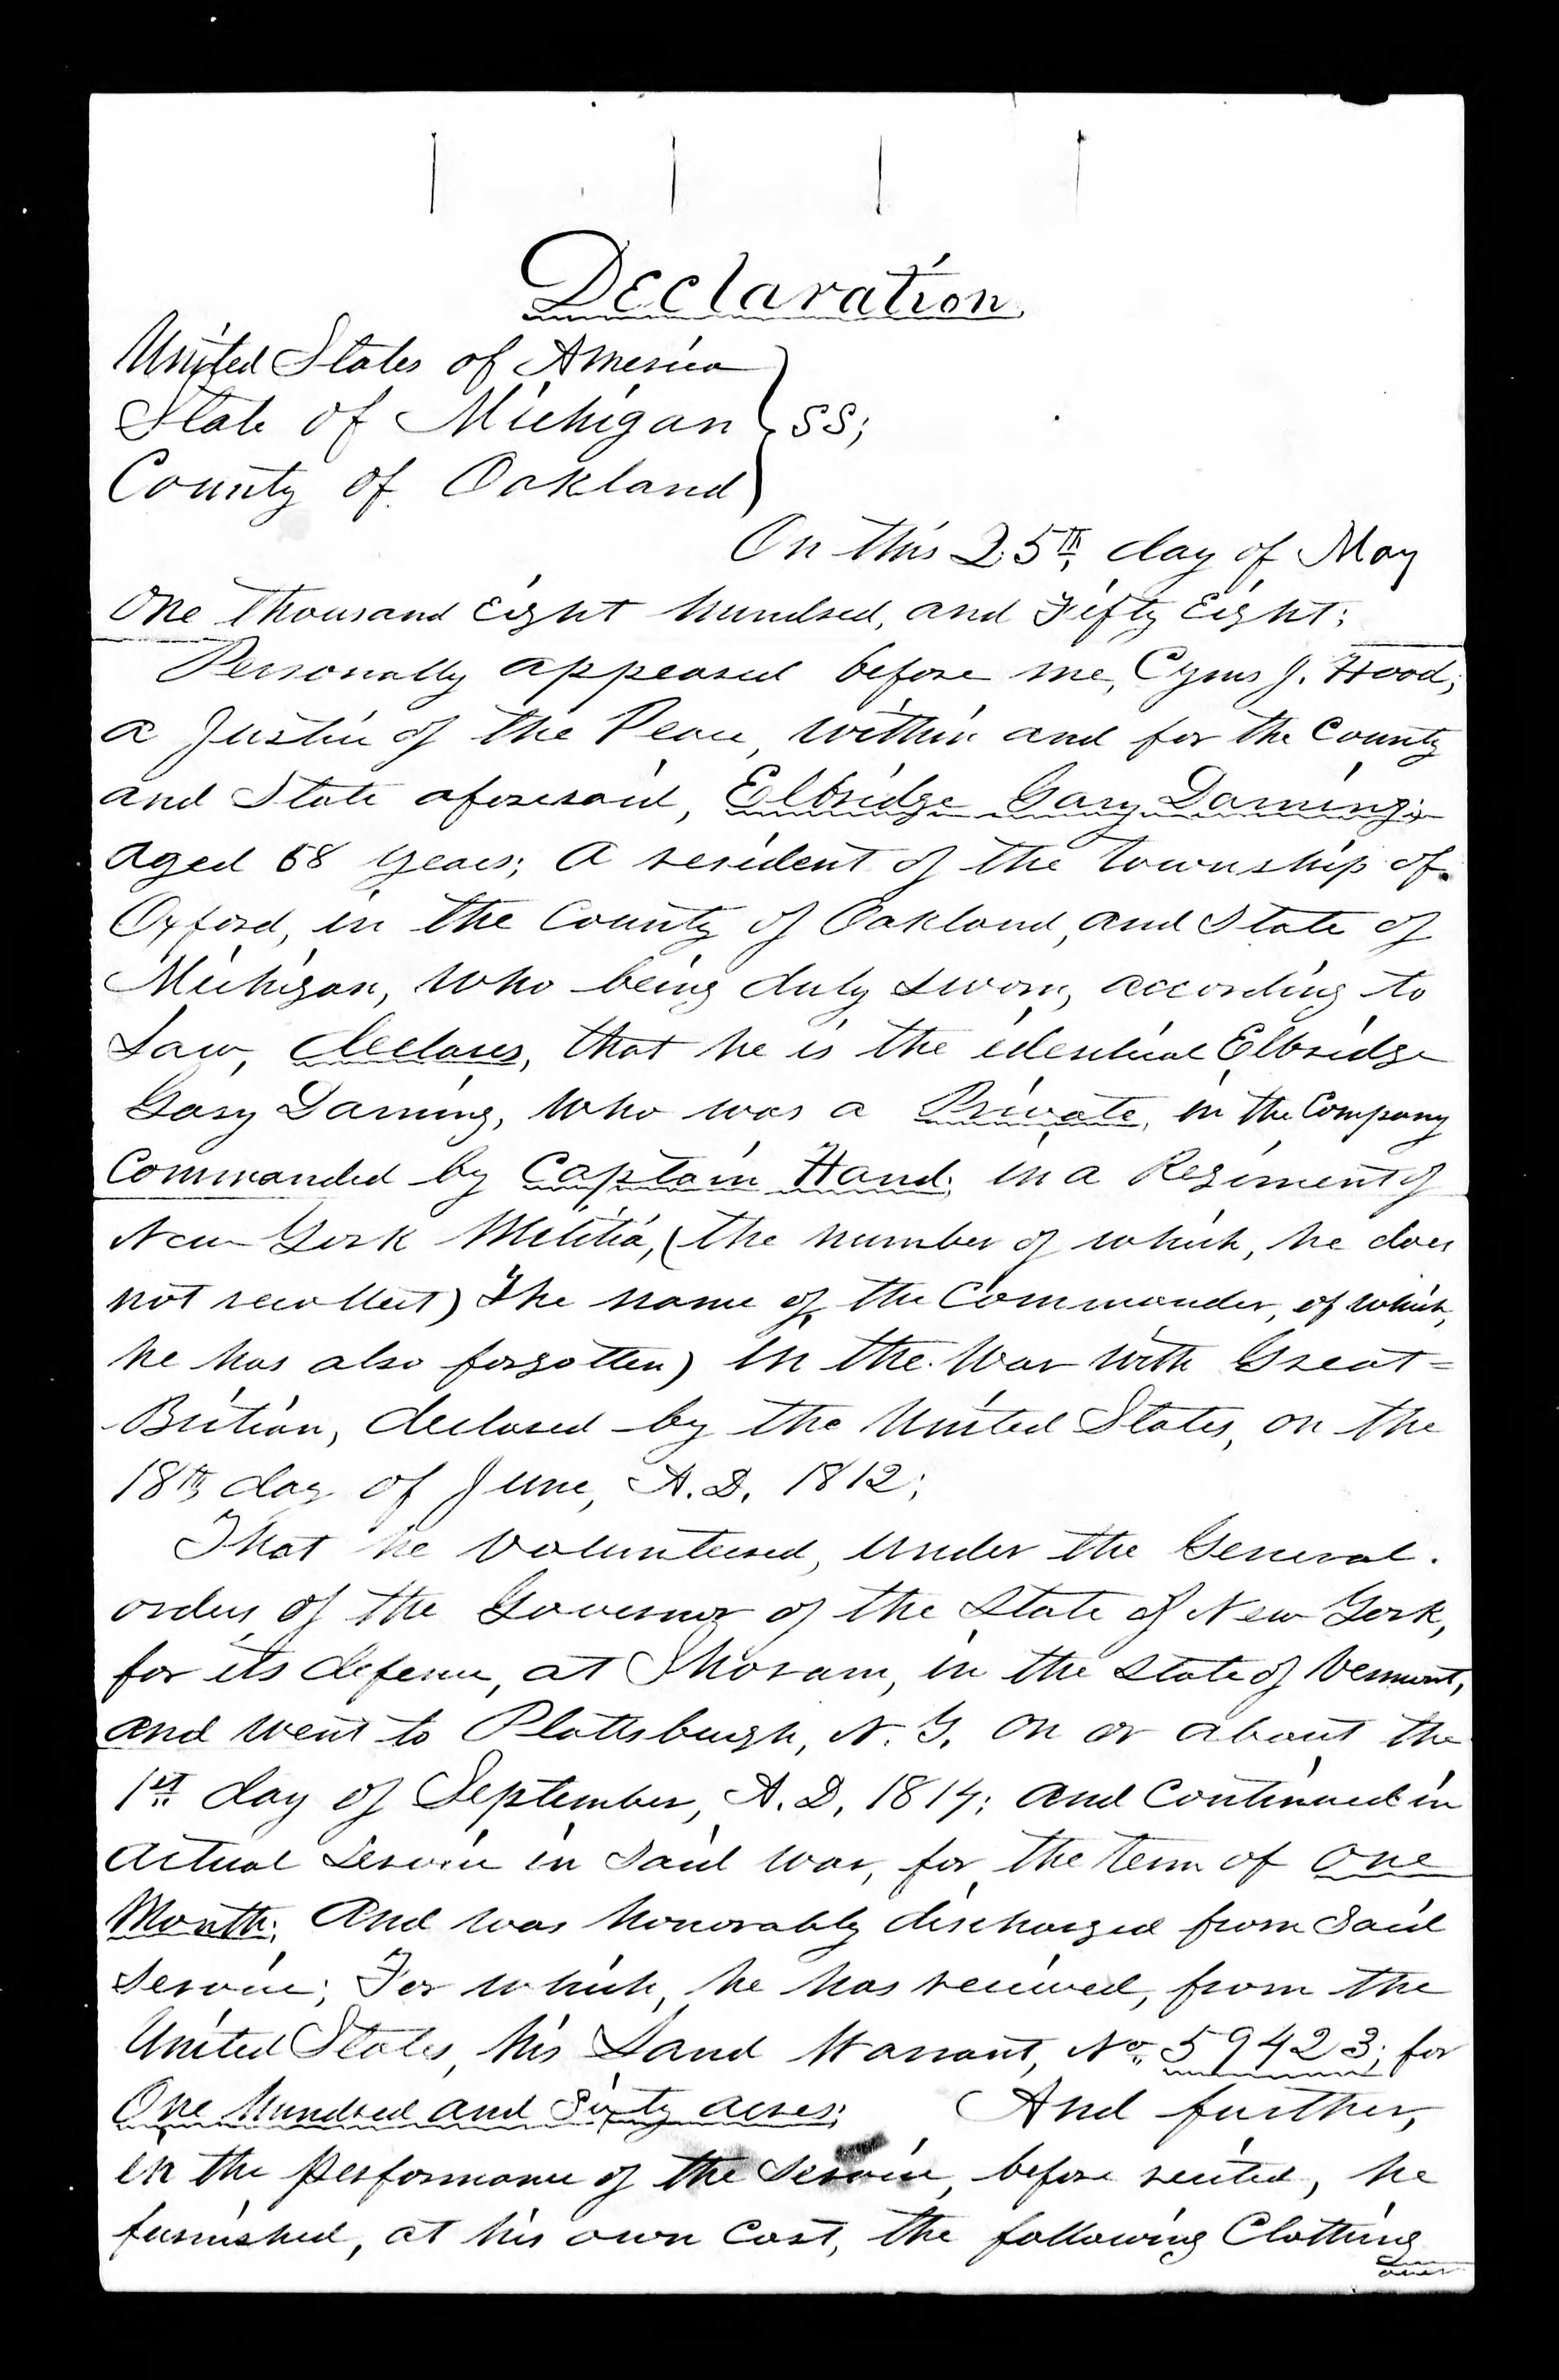 Declaration
United States of America
State of Michigan } SS;
County of Oakland
On this 25th, day of May
One thousand Eight hundred, and Fifty Eight;
Personally appeared before me, Cyrus J. Hood;
a Justice of the Peace, within and for the County
and State aforesaid, Elbridge Gary Darning;
aged 68 years; A resident of the Township of
Oxford, in the County of Oakland, and State of
Michigan, Who being duly sworn, according to
Law, declares, that he is the identical Elbridge
Gary Darning, who was a Private, in the Company
Commanded by Captain Hand, in a Regiment of
New York Militia, (the number of which, he does
not recollect) The name of the Commander, of which,
he has also forgotten) in the War with Great=
Britian, declared by the United States, on the
18th, day of June, A.D. 1812;
That he volunteered, under the General.
orders of the Governor of the State of New York,
for its defence, at Shoram, in the State of Vermont,
and went to Plattsburgh, N.Y. on or about the
1st. day of September, A.D. 1814; and Continued in
actual Service in said war, for the term of One
Month; And was honorably discharged from said
Service; For which, he has received, from the
United States, his Land Warrant, No. 59423; for
One hundred and Sixty acres; And further,
in the performance of the Service, before recited, he
furnished, at his own Cost, the following Clothing
over